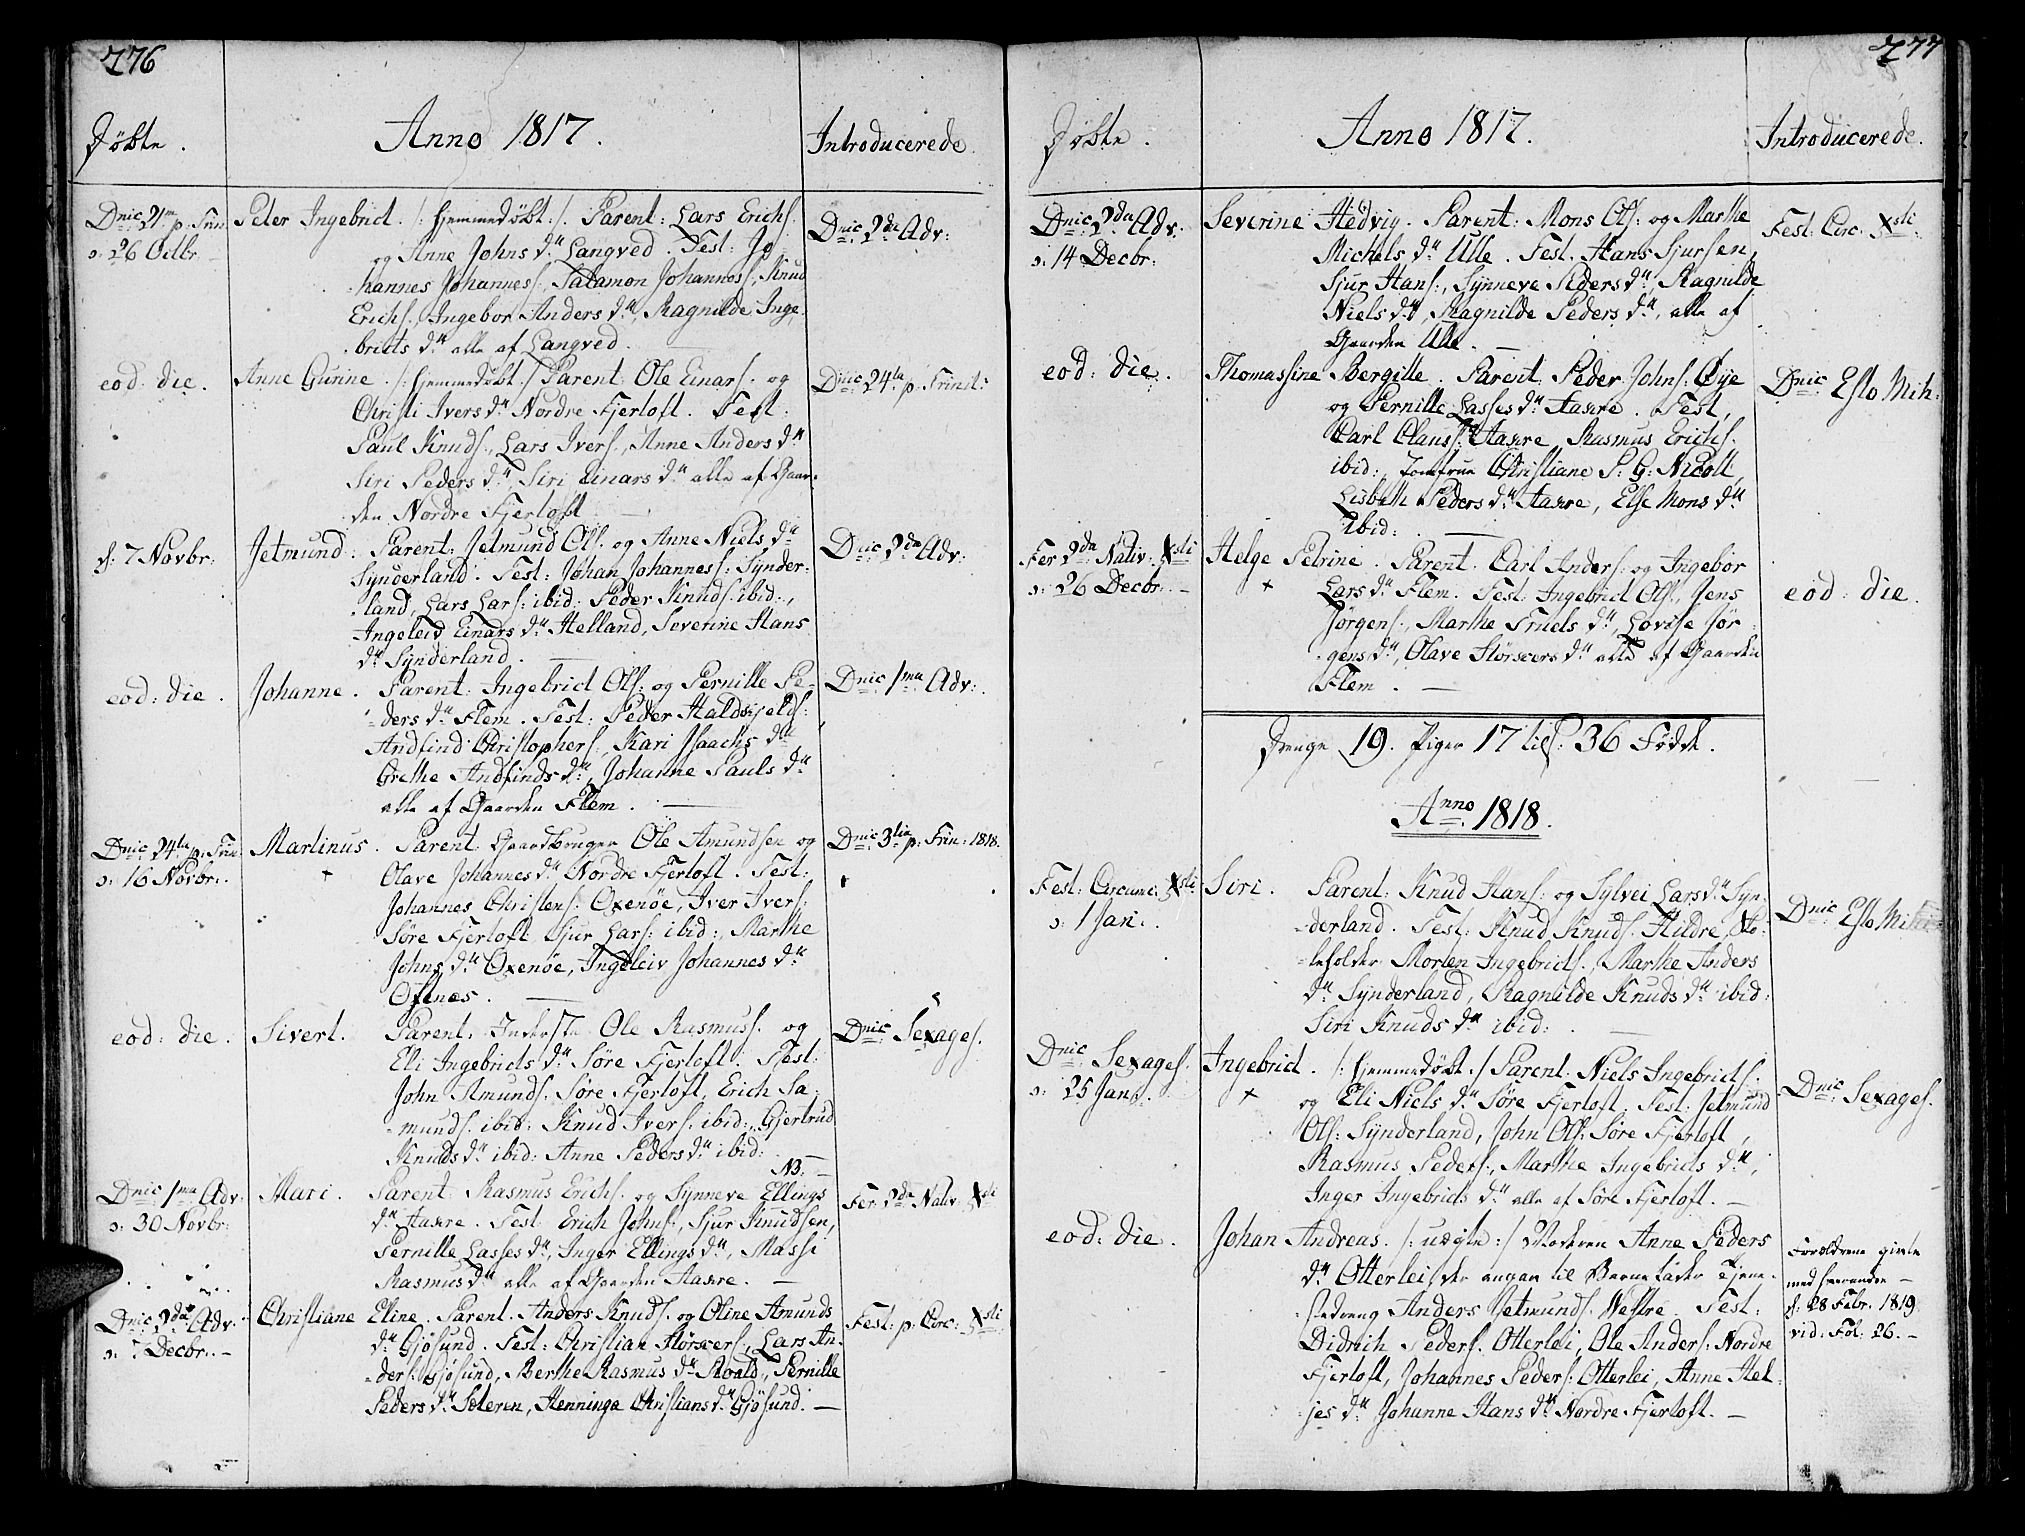 776
Døbte.
Anno 1817.
Introducerede
Dnic: 21me p. Trin
ɔ: 26 Octbr.
Peter Ingebrict. /: hjemmedøbt :/. Parent: Lars Erichs.
og Anne Johns dr Langved. Test: Jo-
hannes Johanness:, Salamon Johanness:, Knud
Erichs:, Ingebor Anders dr, Ragnilde Inge-
bricts dr alle af Langved.
Dnic: 2de Adv:
eod: die.
Anne Gurine. /: hjemmedøbt :/ Parent: Ole Einars: og
Christi Ivers dr Nordre Fjertoft. Test:
Paul Knuds:, Lars Ivers:, Anne Anders dr
Siri Peders dr, Siri Einars dr alle af Gaar-
den Nordre Fjertoft
Dnic: 24te p. Trinit:
d: 7 Novbr:
Jetmund. Parent: Jetmund Ols: og Anne Niels dr
Synderland. Test: Johan Johannes: Synder-
land, Lars Lars: ibid: Peder Knuds: ibid:,
Ingeleiv Einars dr Helland, Severine Hans
dr Synderland.
Dnic: 2da Adv:
eod: die.
Johanne. Parent: Ingebrict Ols: og Pernille Pe-
ders dr Flem. Test: Peder Haldvjelds:
Andfind Christophers:, Kari Isaachs dr
Grethe Andfinds dr, Johanne Pauls dr
alle af Gaarden Flem.
Dnic: 1ma Adv:
Dnic: 24te p. Trin
ɔ: 16 Novbr:
Martinus. Parent: Gaardbruger Ole Amundsen og
+
Olave Johannes dr Nordre Fjertoft. Test:
Johannes Christens: Oxenøe, Iver Ivers:
Søre Fjertoft, Sjur Lars: ibid:, Marthe
Johns dr Oxenøe, Ingeleiv Johannes dr
Ofenæs.
Dnic: 3tia p: Trin: 1818.
eod: die.
Sivert. Parent: Inderste Ole Rasmuss: og
Eli Ingebricts dr Søre Fjertoft. Test:
John Amunds: Søre Fjertoft, Erich Sa-
munds: ibid: Knud Ivers: ibid:, Gjertrud
Knuds dr ibid: Anne Peders dr ibid:
Dnic: Sexages.
NB.
Dnic: 1ma Adv:
ɔ: 30 Novbr:
Mari. Parent: Rasmus Erichs: og Synneve Ellings
dr Aasre. Test: Erich Johns:, Sjur Knudsen,
Pernille Lasses dr, Inger Ellings dr, Massi
Rasmus dr alle af Gaarden Aasre.
Fer: 2da Nativ: Xsti
Dnic: 2da Adv.
ɔ: 7 Decbr:
Christiane Eline. Parent: Anders Knuds: og Oline Amunds
dr Gjøsund. Test: Christian Størsers:, Lars An-
ders: Gjøsund, Berthe Rasmus dr Roald, Pernille
Peders dr Sæteren, Henninga Christians dr Gjøsund.
Fest: p: Circ: Xsti
777
Døbte.
Anno 1817.
Introducerede.
Dnic: 3da Adv.
ɔ: 14 Decbr:
Severine Hedvig. Parent: Mons Ols: og Marthe
Michels dr Ulle. Test. Hans Sjursen,
Sjur Hans:, Synneve Peders dr, Ragnilde
Niels dr, Ragnilde Peders dr, alle af
Gaarden Ulle.
Fest: Circ: Xsti
eod: die.
Thomassine Bergitte. Parent: Peder Johns: Øye
og Pernille Lasses dr Aasre. Test,
Carl Clauss: Aasre, Rasmus Erichs:
ibid:, Jomfrue Christiane S: G: Nicoll,
Lisbeth Peders dr Aasre, Else Mons dr
Ibid:
Dnic: Esto Mih:
Fer 2da Nativ: Xsti
ɔ: 26 Decbr:
Helge Petrine. Parent: Carl Anders: og Ingebor
+
Lars dr Flem. Test: Ingebrict Ols:, Jens
Jørgens:, Marthe Truels dr, Lovise Jør-
gens dr, Olave Størsers dr alle af Gaarden
Flem.
eod: die.
Drenge 19. Piger 17 tils: 36 Fødde.
Anno 1818.
Fest: Circumc: Xsti
ɔ: 1 Jan:
Siri. Parent: Knud Hans: og Sylvei Lars dr Syn-
derland. Test: Knud Knuds: Hildre, Sko-
leholder Morten Ingebricts:, Marthe Anders
dr Synderland, Ragnilde Knuds dr ibid:
Siri Knuds dr ibid:
Dnic: Esto Mih
Dnic: Sexages.
ɔ: 25 Jan:
Ingebrict. /: hjemmedøbt :/ Parent: Niels Ingebricts:
+
og Eli Niels dr Søre Fjertoft. Test: Jetmund
Ols: Synderland, John Ols: Søre Fjertoft,
Rasmus Peders:, Marthe Ingebricts dr,
Inger Ingebricts dr alle af Søre Fjertoft.
Dnic: Sexages.
eod: die.
Johan Andreas. /: uægte :/ Moderen Anne Peders
dr Otterlei, der angav til Barnefader Tjene-
stedreng Anders Jetmunds: Westre. Test:
Didrich Peders: Otterlei, Ole Anders: Nordre
Fjertoft, Johannes Peders: Otterlei, Anne Hel-
jes dr, Johanne Hans dr Nordre Fjertoft.
Forældrene givte
med hverandre
d: 28 Febr. 1819
vid: Fol: 26.